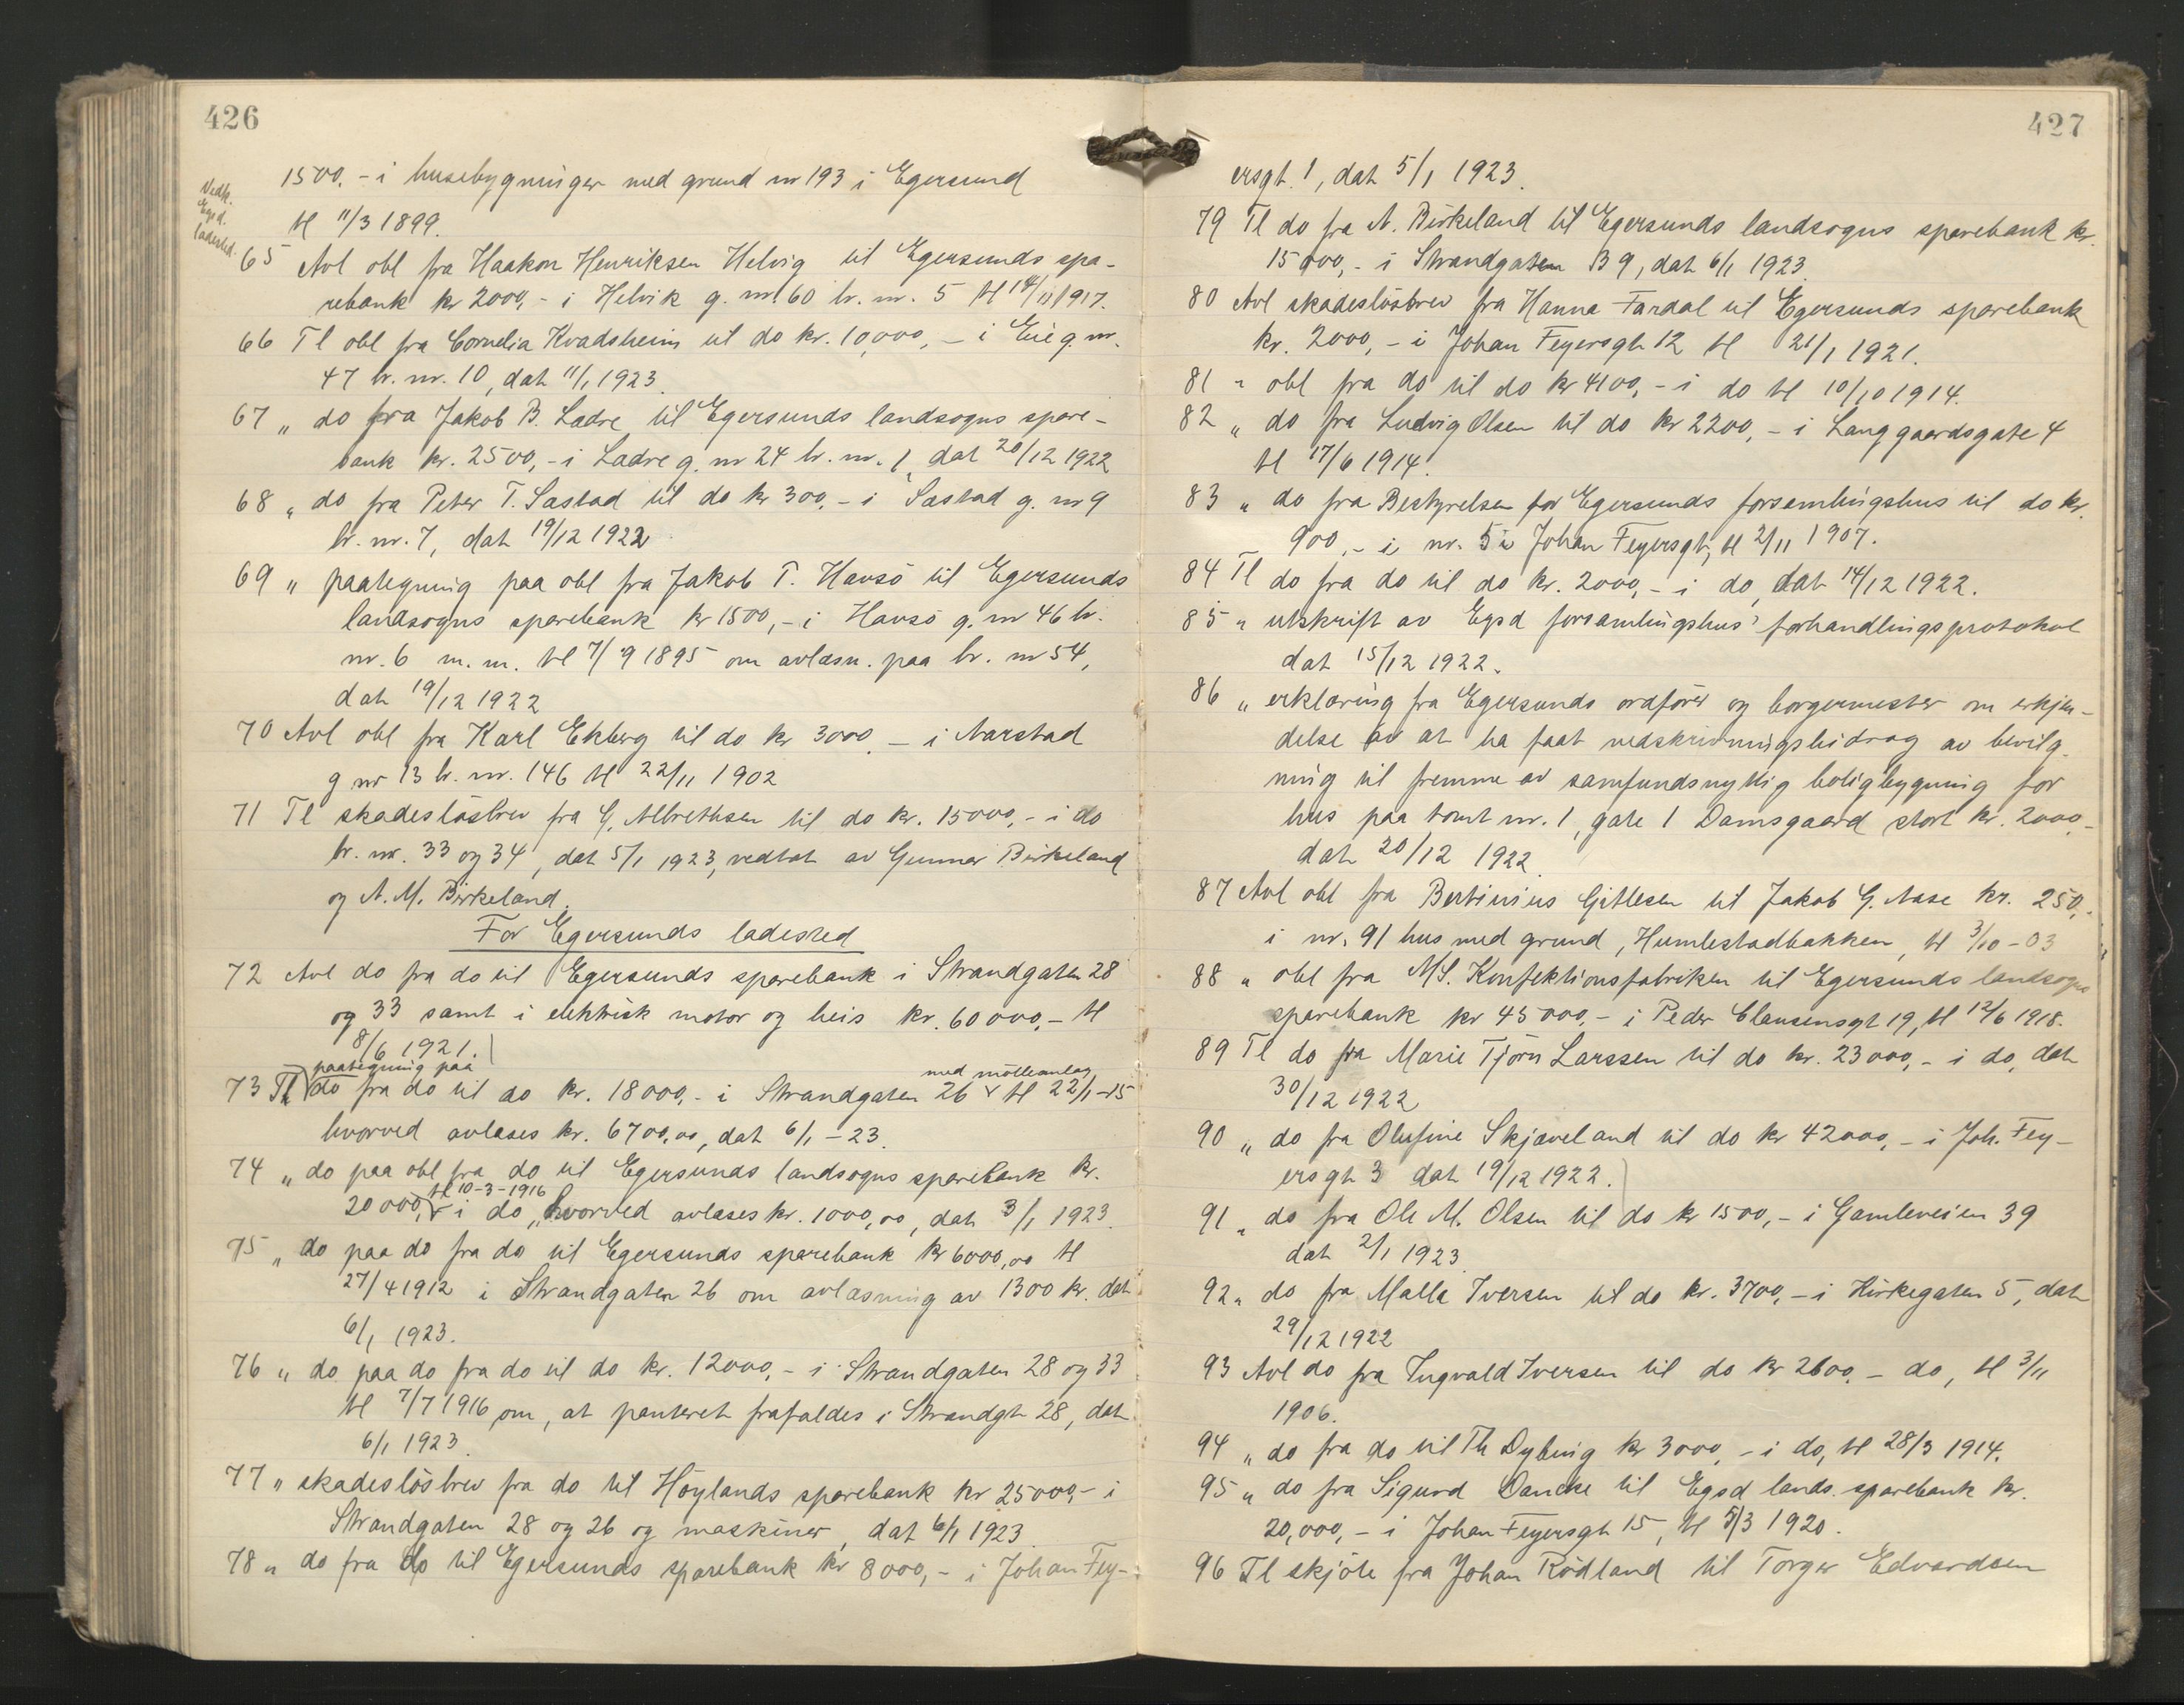 426
1500,- i husebygninger med grund nr 193 i Egersund
Vedk.
Egsd.
ladested.
tl 11/3 1899.
65 Avl obl fra Haakon Henriksen Helvig til Egersunds spa-
rebank kr 2000,- i Helvik g. nr. 60 br. nr. 5 tl 14/11 1917.
66 Tl obl fra Cornelia Kvadsheim til do kr. 10,000,- i Eie g. nr.
47 br. nr. 10, dat 11/1 1923.
67 " do fra Jakob B. Ladre til Egersunds landsogns spare-
bank kr. 2500,- i Ladre g. nr 24 br. nr. 1, dat 20/12 1922
68 " do fra Peter T. Sæstad til do kr 300,- i Sæstad g. nr 9
br. nr. 7, dat 19/12 1922.
69 " paategning paa obl fra Jakob T. Havsö til Egersunds
landsogns sparebank kr 1500,- i Havsö g. nr 46 br.
nr. 6 m. m. tl 7/9 1895 om avlæsn. paa br. nr 54,
dat 19/12 1922
70 Avl obl fra Karl Ekberg til do kr 3000,- i Aarstad
g nr 13 br. nr. 146 tl 22/11 1902
71 Tl skadeslösbrev fra G. Albrethsen til do kr. 15000,- i do
br. nr. 33 og 34, dat 5/1 1923, vedtat av Gunnar Birkeland
og A. M. Birkeland.
For Egersunds ladested
72 Avl do fra do til Egersunds sparebank i Strandgaten 28
og 33 samt i elektrisk motor og heis kr. 60000,- tl
8/6 1921.
paategning paa
med mölleanlæg
73 Tl do fra do til do kr. 18000,- i Strandgaten 26 tl 22/1-15
hvorved avlæses kr. 6700,00, dat 6/1 - 23.
74 " do paa obl fra do til Egersunds landsogns sparebank kr.
tl 10-3-1916
20000,- i do, hvorved avlæses kr. 1000,00, dat 3/1 1923.
75 " do paa do fra do til Egersunds sparebank kr 6000,00 tl
27/4 1912 i Strandgaten 26 om avlæsning av 1300 kr. dat
6/1 1923.
76 " do paa do fra do til do kr. 12000,- i Strandgaten 28 og 33
tl 7/7 1916 om, at panteret frafaldes i Strandgt 28, dat
6/1 1923.
77 " skadeslösbrev fra do til Höylands sparebank kr 25000,- i
Strandgaten 28 og 26 og maskiner, dat 6/1 1923.
78 " do fra do til Egersunds sparebank kr 8000,- i Johan Fey-
427
ersgt. 1, dat 5/1 1923.
79 Tl do fra A. Birkeland til Egersunds landsogns sparebank kr.
15000,- i Strandgaten B 9, dat 6/1 1923.
80 Avl skadeslösbrev fra Hanna Fardal til Egersunds sparebank
kr. 2000,- i Johan Feyersgt 12 tl 21/1 1921.
81 " obl fra do til do kr 4100,- i do tl 10/10 1914.
82 " do fra Ludvig Olsen til do kr 2200,- i Langgaardsgate 4
tl 17/6 1914.
83 " do fra Bestyrelsen for Egersunds forsamlingshus til do kr.
900,- i nr. 5 i Johan Feyersgt, tl 2/11 1907.
84 Tl do fra do til do kr. 2000,- i do, dat 14/12 1922.
85 " utskrift av Egsd forsamlingshus' forhandlingsprotokol
dat 15/12 1922.
86 " erklæring fra Egersunds ordförer og borgermester om erkjen-
delse av at ha faat nedskrivningsbidrag av bevilg-
ning til fremme av samfundsnyttig boligbygning for
hus paa tomt nr. 1, gate 1 Damsgaard stort kr. 2000,-
dat 20/12 1922.
87 Avl obl fra Bertinius Gitlesen til Jakob G. Aase kr. 250,-
i nr. 91 hus med grund, Humlestadbakken, tl 3/10 - 03
88 " obl fra A/S. Konfektionsfabriken til Egersunds landsogns
sparebank kr 45000,- i Peder Clausensgt 19, tl 12/6 1918.
89 Tl do fra Marie Tjörn Larssen til do kr. 23000,- i do, dat
30/12 1922
90 " do fra Olufine Skjæveland til do kr 42000,- i Joh. Fey-
ersgt 3 dat 19/12 1922.
91 " do fra Ole M. Olsen til do kr 1500,- i Gamleveien 39
dat 2/1 1923.
92 " do fra Malla Iversen til do kr. 3700,- i Kirkegaten 5, dat
29/12 1922
93 Avl do fra Ingvald Iversen til do kr 2600,- do, tl 3/11
1906.
94 " do fra do til Th Dybing kr 3000,- i do, tl 28/3 1914.
95 " do fra Sigurd Dancke til Egsd lands. sparebank kr.
20,000,- i Johan Feyersgt 15, tl 5/3 1920.
96 Tl skjöte fra Johan Rödland til Torger Edvardsen